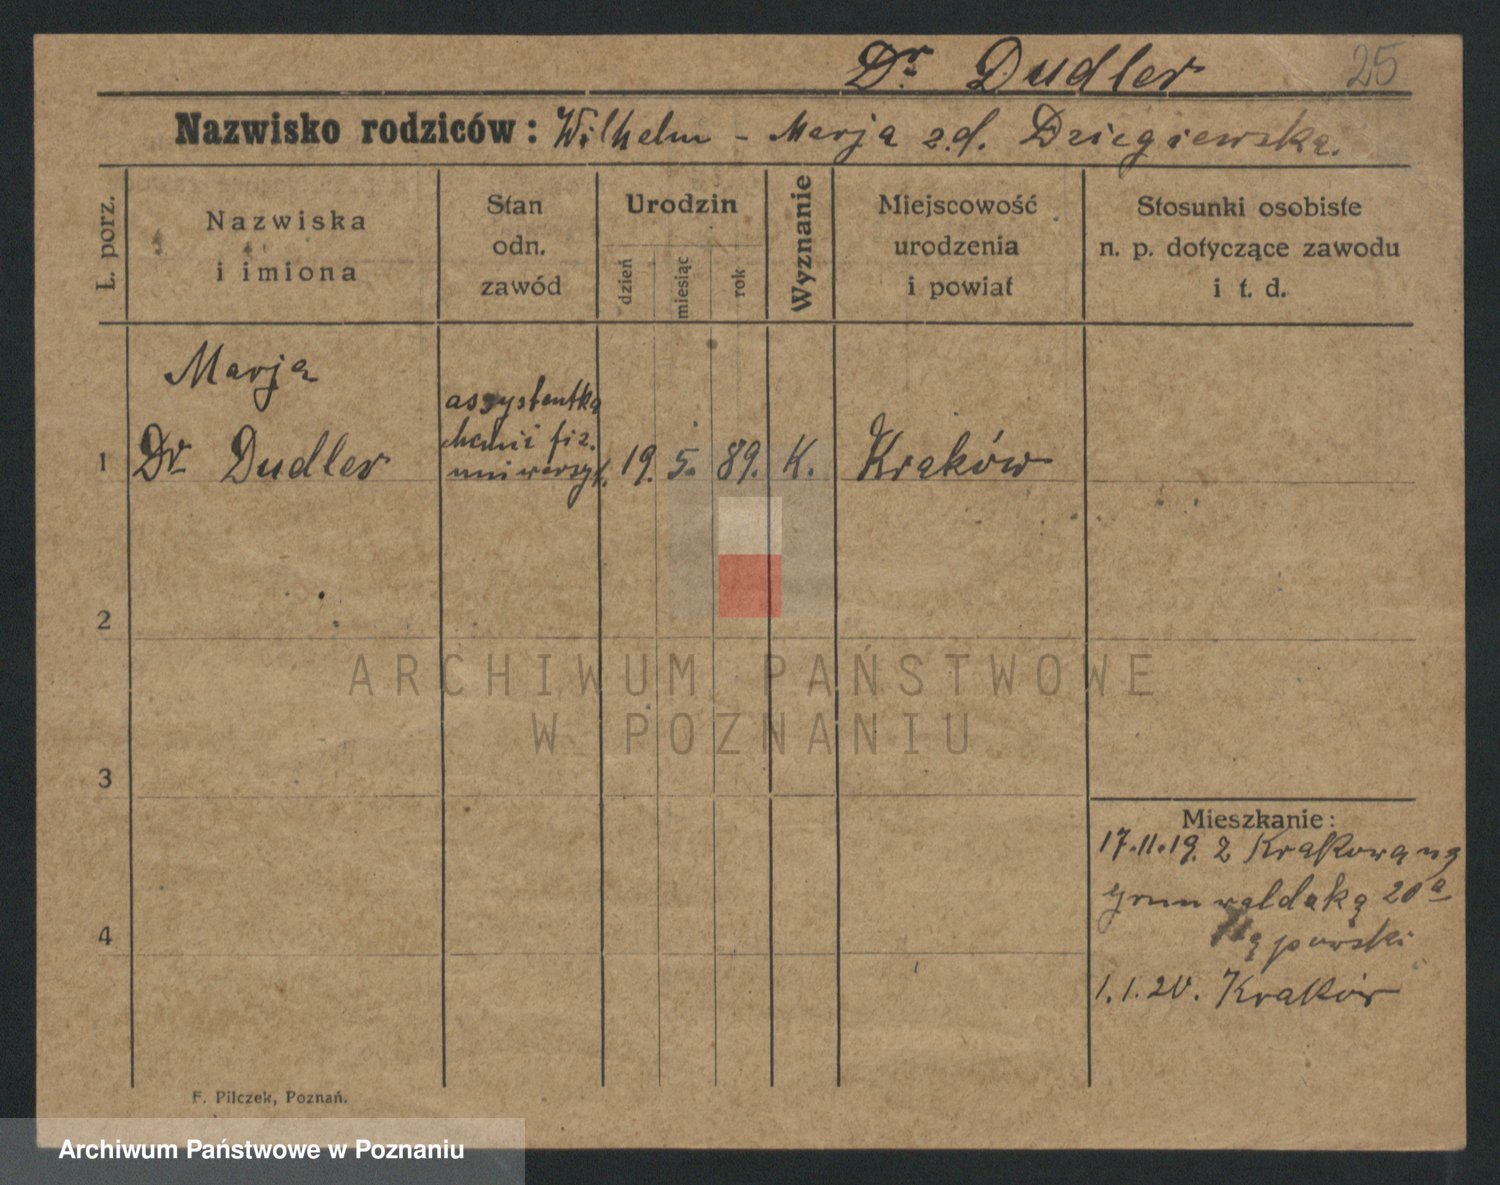 Dr. Dudler 25
Nazwisko rodziców: Wilhelm - Marja z.d. Dzięgiewska.
L. porz.
Nazwiska
i imiona
Stan
odn.
zawód
Urodzin
dzień
miesiąc
rok
Wyznanie
Miejscowość
urodzenia
i powiat
Stosunki osobiste
n. p. dotyczące zawodu
i t. d.
Marja
1 Dr Dudler
assystentka
chemii fiz.
uniwersyt.
19. 5. 89. K. Kraków
2
ARCHIWUM PAŃSTWOWE
W POZNANIU
3
Mieszkanie:
17.11.19. z Krakowa na
grunwaldzką 20a
4
1.1.20. Kraków
F. Pilczek, Poznań.
Archiwum Państwowe w Poznaniu